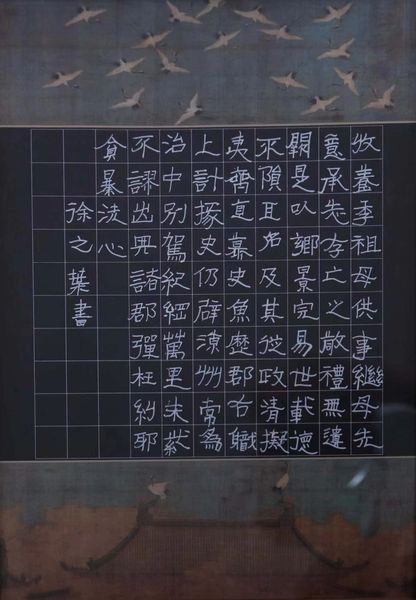 收養季祖母供事繼母先
意承志存亡之敬禮無遺
闕是以鄉景完易世載德
不隕且名及其從政清擬
夷齊直慕史魚歷郡右職
上計掾史仍辟涼州常為
治中別駕紀綱萬里朱紫
不謬出典諸郡彈枉糾邪
貪暴洗心
徐之葉書